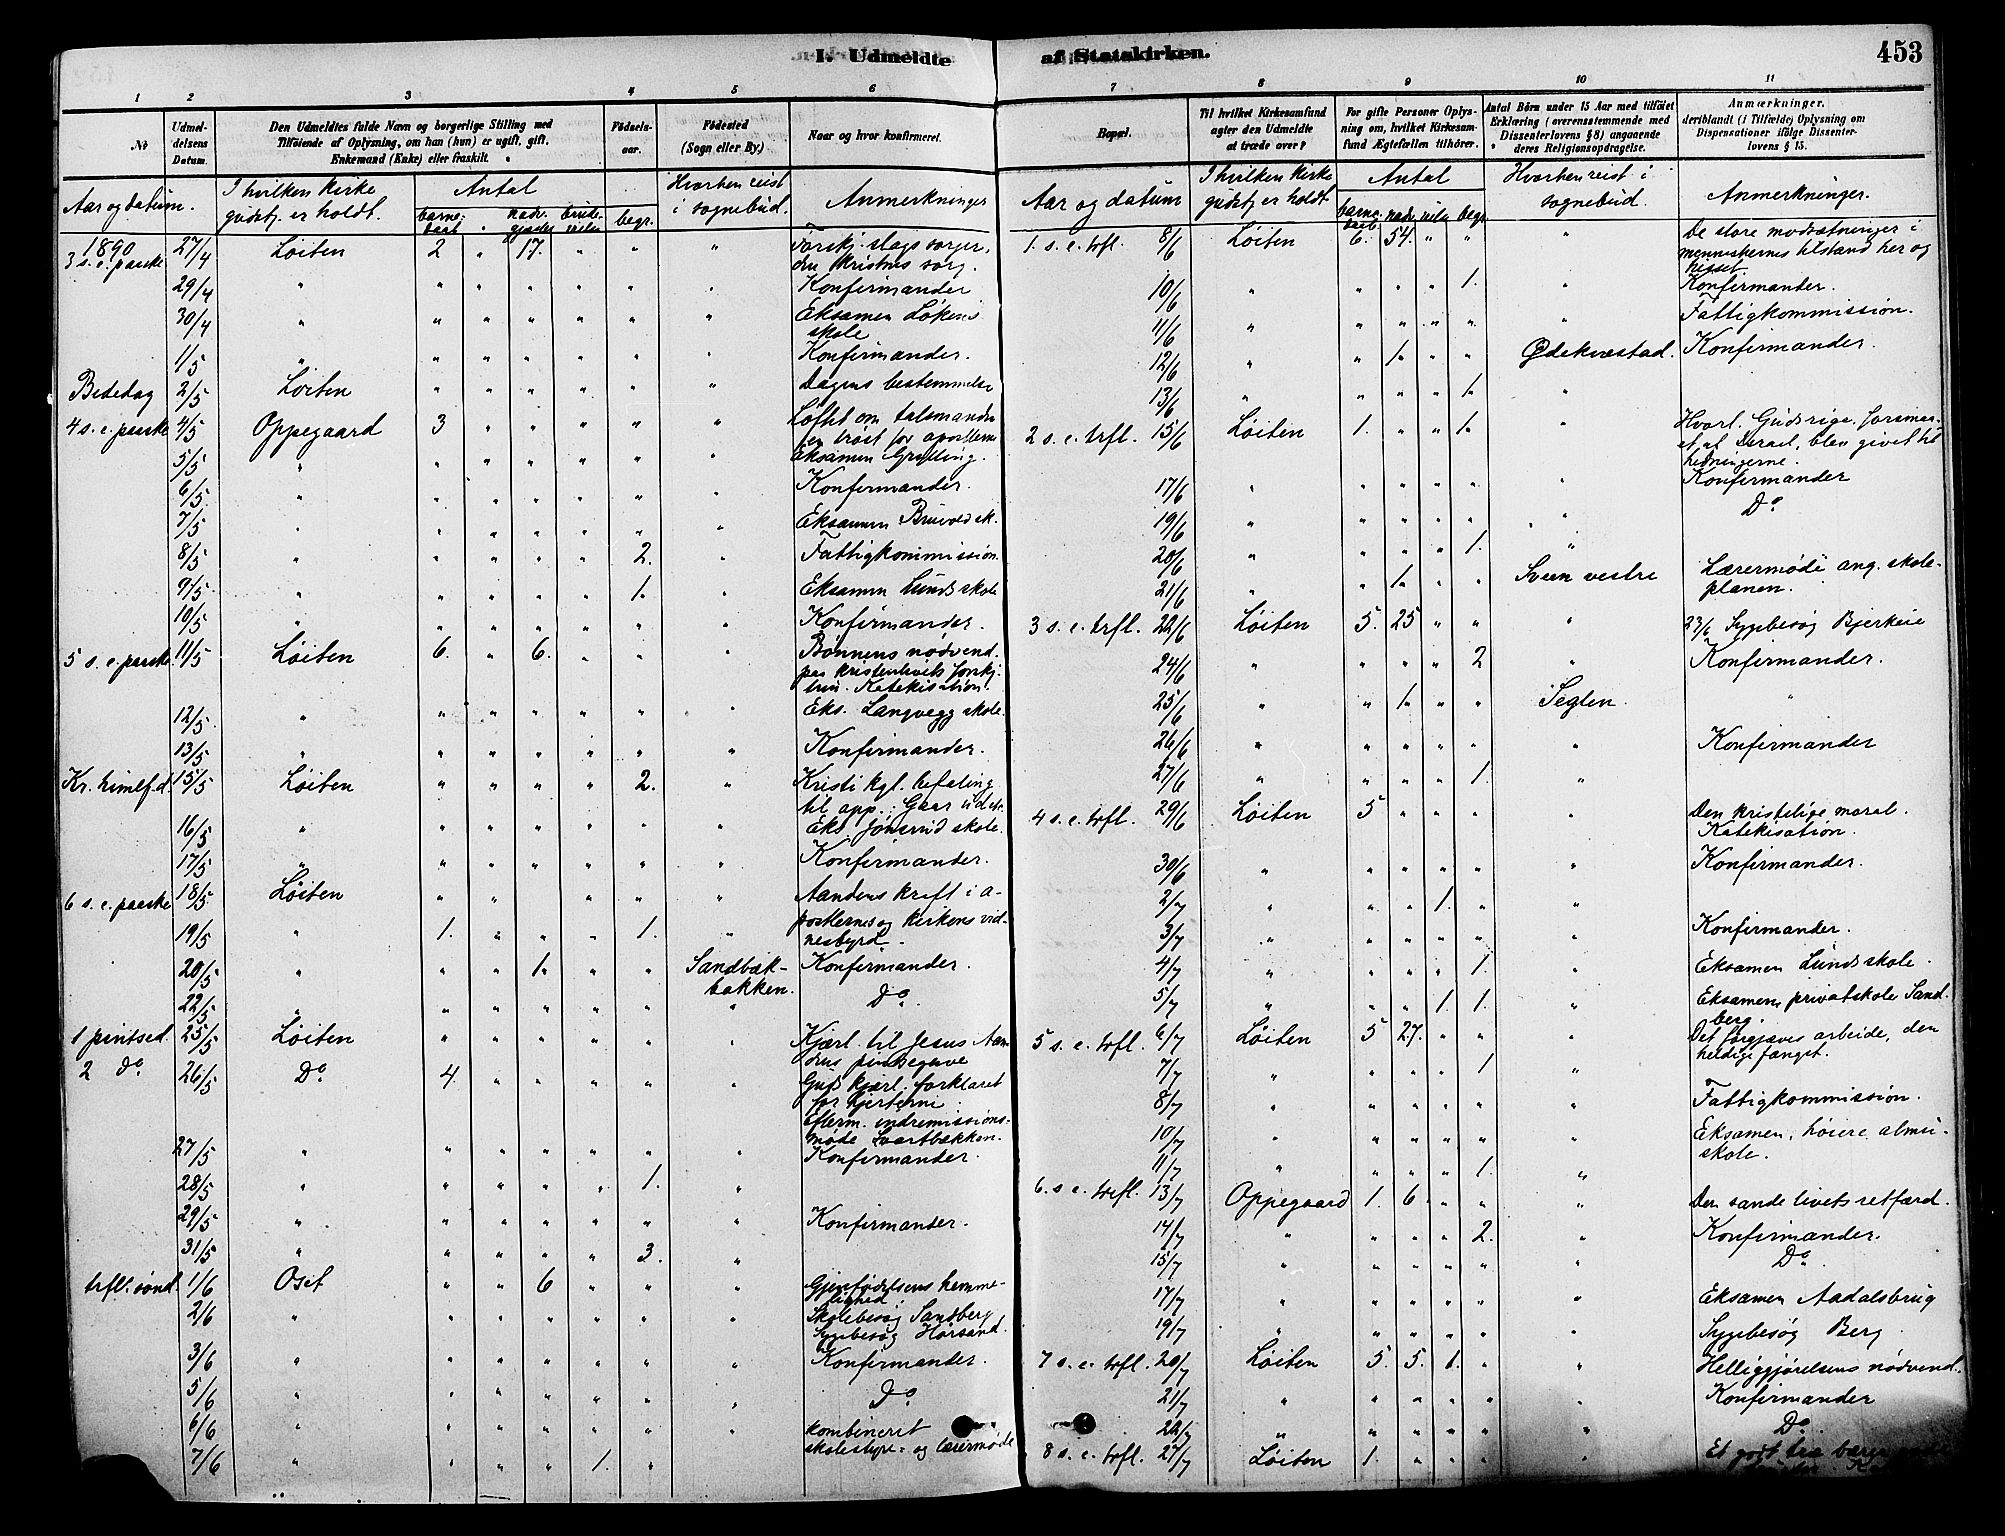 I. Udmeldte af Statskirken.
453
1 2 3 4 5 6
No
Udmel-
delsens
Datum.
Den Udmeldtes fulde Navn og borgerlige Stilling med
Tilføiende af Oplysning, om han (hun) er ugift, gift,
Enkemand (Enke) eller fraskilt.
Fødsels-
aar.
Fødested
(Sogn eller By.)
Naar og hvor konfirmeret.
Aar og datum.
I hvilken kirke
gudstj. er holdt.
Antal
barne-
daab
nadv.
gjester
brude-
vielse
begr.
Hvorhen reist
i sognebud.
Anmerkninger
1890
3 s. e. paaske 27/4 Løiten 2 " 17. " " " Forskj. slags sorger,
den kristnes sorg.
29/4 " " " " " " " Konfirmander
30/4 " " " " " " " Eksamen Løkens
skole
1/5 " " " " " " " Konfirmander.
Bededag 2/5 Løiten " " " " " " Dagens bestemmelse
4 s. e. paaske 4/5 Oppegaard 3 " " " " " Løftet om talsmanden
en trøst for apostlerne
5/5 " " " " " " " Eksamen Grylling.
6/5 " " " " " " " Konfirmander.
7/5 " " " " " " " Eksamen Bruvold sk.
8/5 " " " " " 2. " Fattigkommission
9/5 " " " " " 1. " Eksamen Lunds skole
10/5 " " " " " " " Konfirmander.
5 s. e. paaske 11/5 Løiten 6. " 6. " " " Bønnens nødvend.
paa kristenlivets forskj.
trin. Katekisation.
12/5 " " " " " " " Eks. Langvegg skole.
13/5 " " " " " " " Konfirmander.
Kr. himlf.d. 15/5 Løiten " " " " 2. " Kristi kgl. befaling
til app.: Gaar ud etc.
16/5 " " " " " " " Eks. Jønsrud skole.
17/5 " " " " " " " Konfirmander.
6 s. e. paaske 18/5 Løiten " " " " " " Aandens kraft i a-
postlernes og kirkens vid-
19/5 " 1. " " " 1. " nesbyrd.
20/5 " " " 1. " " Sandbæk-
bakken. Konfirmander.
22/5 " " " " " " " Do
1 pintsed. 25/5 Løiten " " " " " " Kjærl. til Jesus Aan-
dens pintsegave
2 do 26/5 Do 4. " " " " " Guds kjærl. forklaret
for hjerterne
Efterm. indremissions-
møde Svartbækken.
27/5 " " " " " " " Konfirmander.
28/5 " " " " " 1. "
29/5 " " " " " " " Konfirmander.
31/5 " " " " " 3. "
trflt. sønd. 1/6 Oset " " 6 " " " Gjenfødelsens hemme-
lighed.
2/6 " " " " " " " Skolebesøg Sandberg
Sygebesøg Horsand.
3/6 " " " " " " " Konfirmander.
5/6 " " " " " " " Do
6/6 " " " " " " " kombineret
skolestyre- og lærermøde
7/6 " " " " 1. "
7 8 9 10 11
Bopæl.
Til hvilket Kirkesamfund
agter den Udmeldte
at træde over?
For gifte Personer Oplys-
ning om, hvilket Kirkesam-
fund Ægtefællen tilhører.
Antal Børn under 15 Aar med tilføiet
Erklæring (overensstemmende med
Dissenterlovens § 8) angaaende
deres Religionsopdragelse.
Anmærkninger.
deriblandt (i Tilfælde) Oplysning om
Dispensationer ifølge Dissenter-
lovens § 15.
Aar og datum
I hvilken kirke
gudstj. er holdt.
Antal
barne-
daab
nadv.
viels.
begr.
Hvorhen reist i
sognebud.
Anmerkninger.
1. s. e. trfl. 8/6 Løiten 6. 54. " " " De store modsætninger i
menneskernes tilstand her og
hisset.
10/6 " " " " 1. " Konfirmander.
11/6 " " " " " " Fattigkommission.
12/6 " " 1. " " Ødekvestad. Konfirmander.
13/6 " " " " 1. "
2 s. e. trfl. 15/6 Løiten 1. " " 1. " Hvorl. Guds rige, forsmaa-
et af Israel, blev givet til
hedningerne.
17/6 " " " " " " Konfirmander
19/6 " " " " " " Do
20/6 " " " " 1. "
21/6 " " 1. " " Sveen vestre Lærermøde ang. skole-
planen.
3 s. e. trfl. 22/6 Løiten 5. 25 " " " 23/6 Sygebesøg Bjerkeie
24/6 " " " " 2 " Konfirmander.
25/6 " " 1. " " Seglen. "
26/6 " " " " " " Konfirmander
27/6 " " " " 1. "
4 s. e. trfl. 29/6 Løiten 5 " " " " Den kristelige moral.
Katekisation.
30/6 " " " " " " Konfirmander.
2/7 " " " 1. " "
3/7 " " " " " " Konfirmander.
4/7 " " " " 1. " Eksamen Lunds skole.
5/7 " " " 1. 1. " Eksamen privatskole Sand-
berg.
5 s. e. trfl. 6/7 Løiten 5 27. " " " Det forgjæves arbeide, den
heldige fangst.
7/7 " " " " 1 "
8/7 " " " " " " Fattigkommission.
10/7 " " " " " " Eksamen, høiere almu-
skole.
11/7 " " " " 1. "
6. s. e. trfl. 13/7 Oppegaard 1. 6 " " " Den sande livets retfærd.
14/7 " " " " 2. " Konfirmander.
15/7 " " " " " " Do
17/7 " " " " " " Eksamen Aadalsbrug
19/7 " " " " " " Sygebesøg Berg.
7 s. e. trfl. 20/7 Løiten 5. 5. 1. " " Helliggjørelsens nødvend.
21/7 " " " " " " Konfirmander
22/7 " " " " " " Do
8 s. e. trfl. 27/7 Løiten 1. " " " " Et godt træ bærer